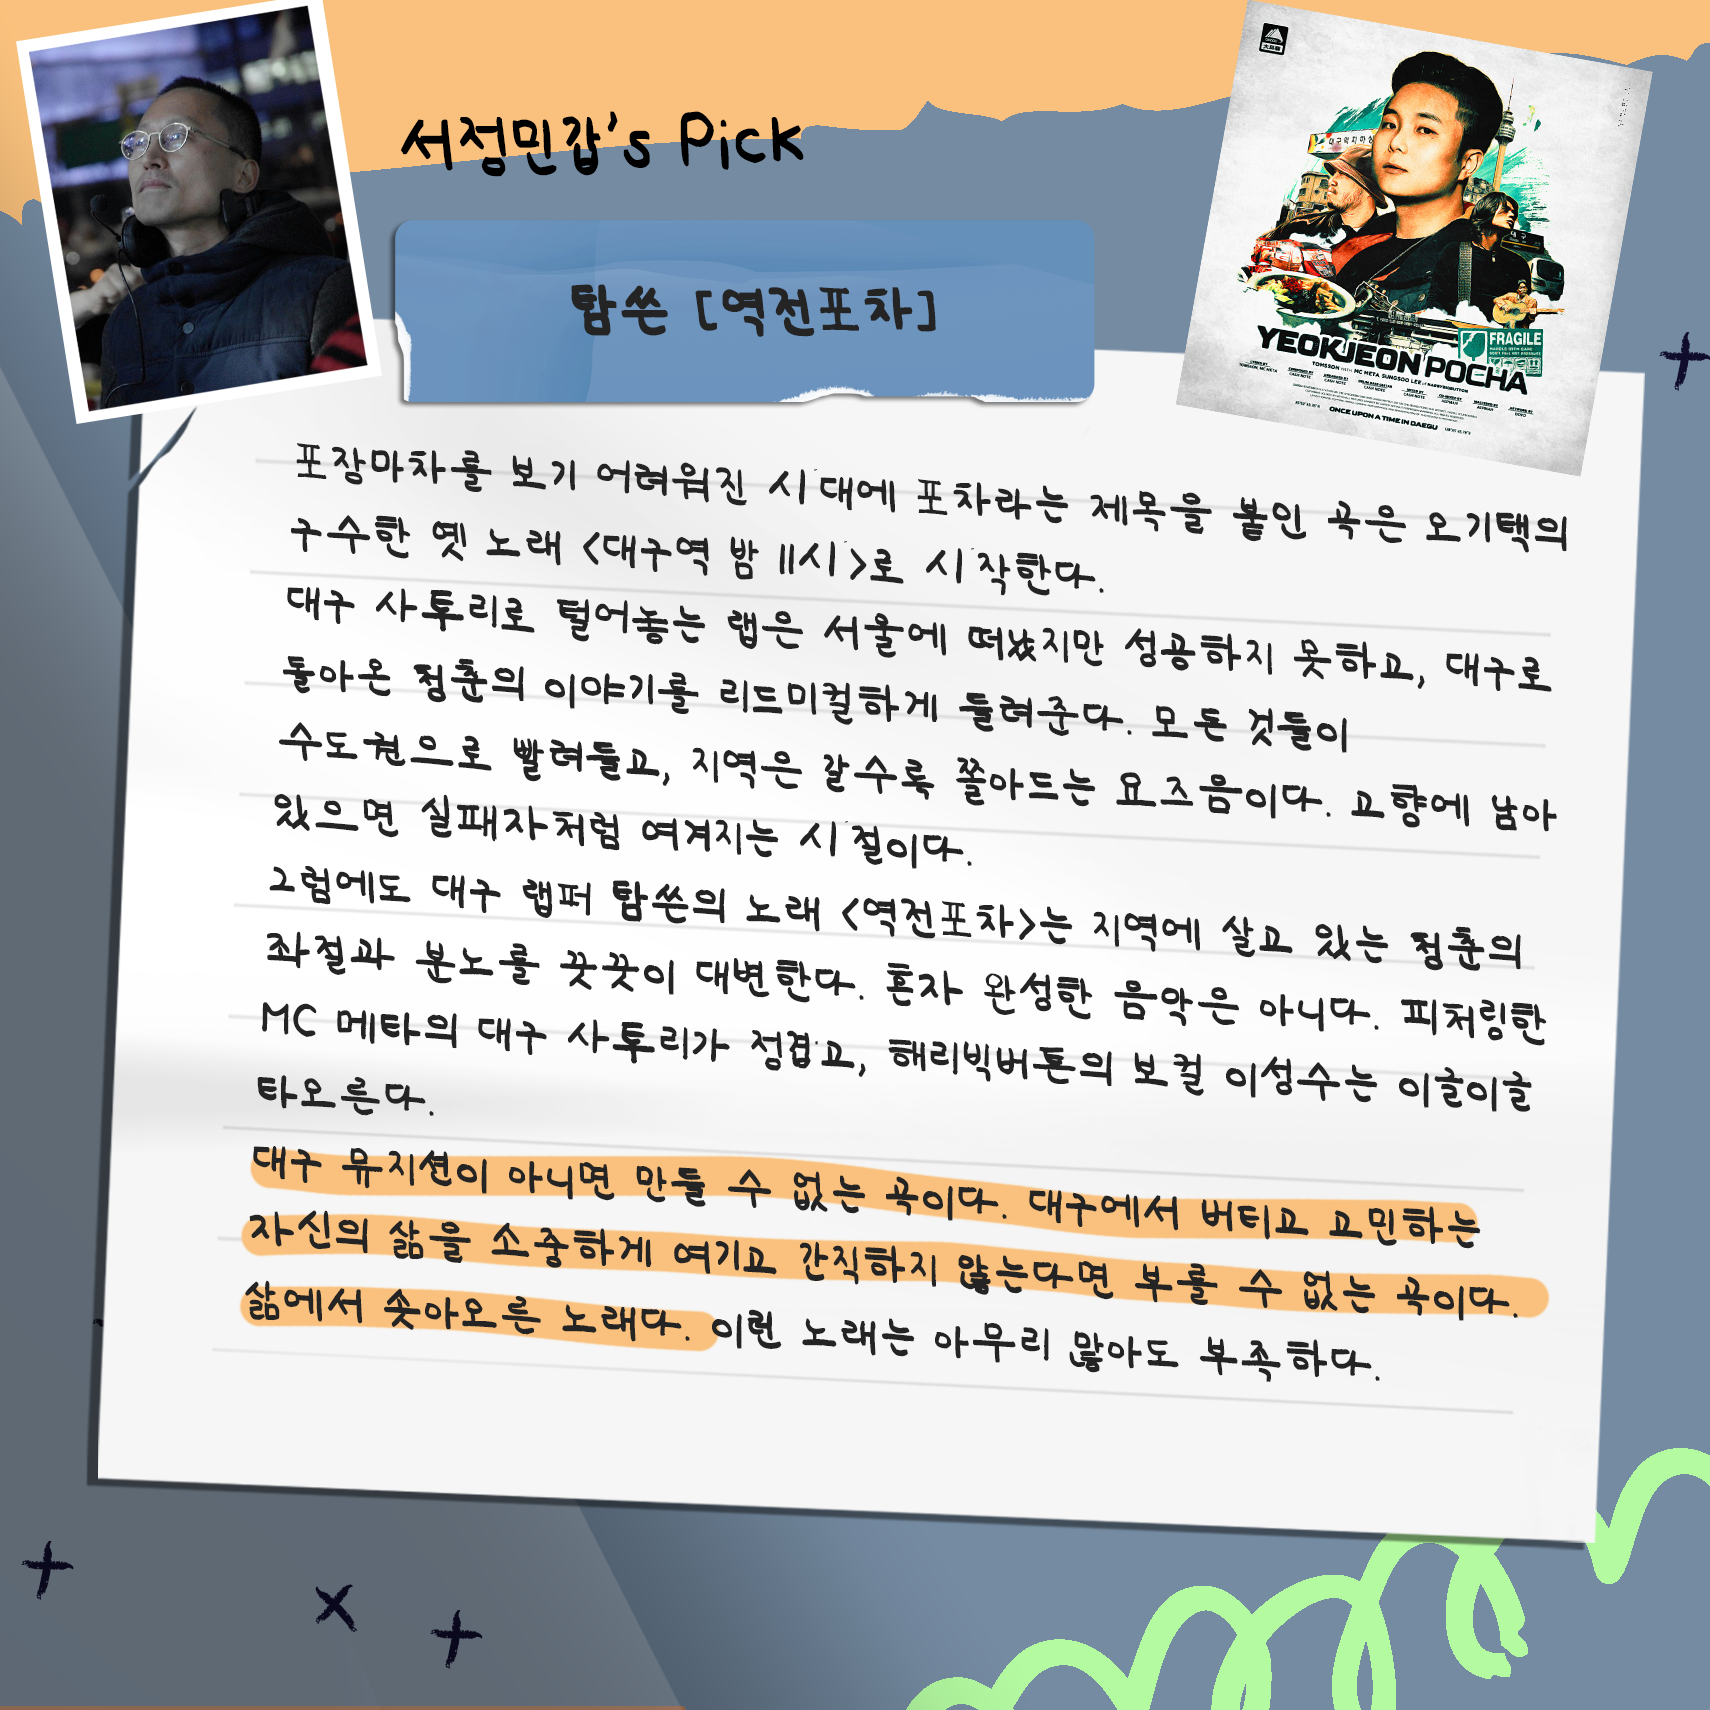 서정민갑's Pick
탐쓴 [역전포차]
대구
YEOKJEON POCHA
FRAGILE
TOMSSON WITH MC META, SUNGSOO LEE of HARRYBIGBUTTON
ONCE UPON A TIME IN DAEGU
포장마차를 보기 어려워진 시대에 포차라는 제목을 붙인 곡은 오기택의
구수한 옛 노래 <대구역 밤 11시>로 시작한다.
대구 사투리로 털어놓는 랩은 서울에 떠났지만 성공하지 못하고, 대구로
돌아온 청춘의 이야기를 리드미컬하게 들려준다. 모든 것들이
수도권으로 빨려들고, 지역은 갈수록 쫄아드는 요즈음이다. 고향에 남아
있으면 실패자처럼 여겨지는 시절이다.
그럼에도 대구 랩퍼 탐쓴의 노래 <역전포차>는 지역에 살고 있는 청춘의
좌절과 분노를 꿋꿋이 대변한다. 혼자 완성한 음악은 아니다. 피처링한
MC 메타의 대구 사투리가 정겹고, 해리빅버튼의 보컬 이성수는 이글이글
타오른다.
대구 뮤지션이 아니면 만들 수 없는 곡이다. 대구에서 버티고 고민하는
자신의 삶을 소중하게 여기고 간직하지 않는다면 부를 수 없는 곡이다.
삶에서 솟아오른 노래다. 이런 노래는 아무리 많아도 부족하다.